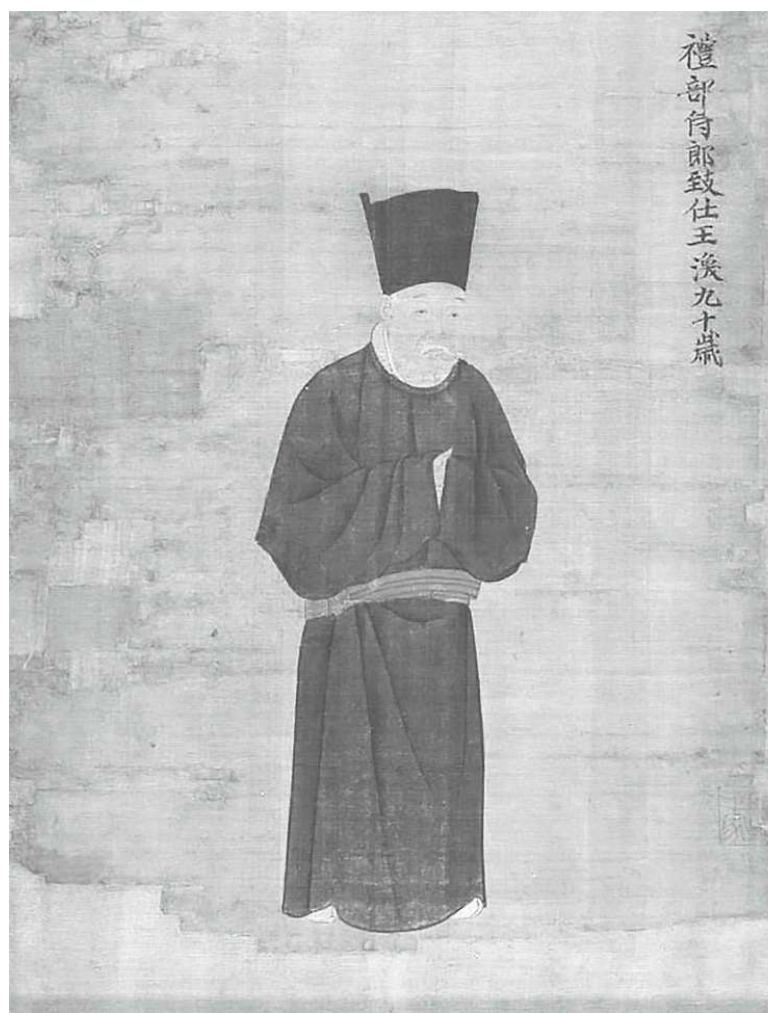 禮部侍郎致仕王渙九十歲